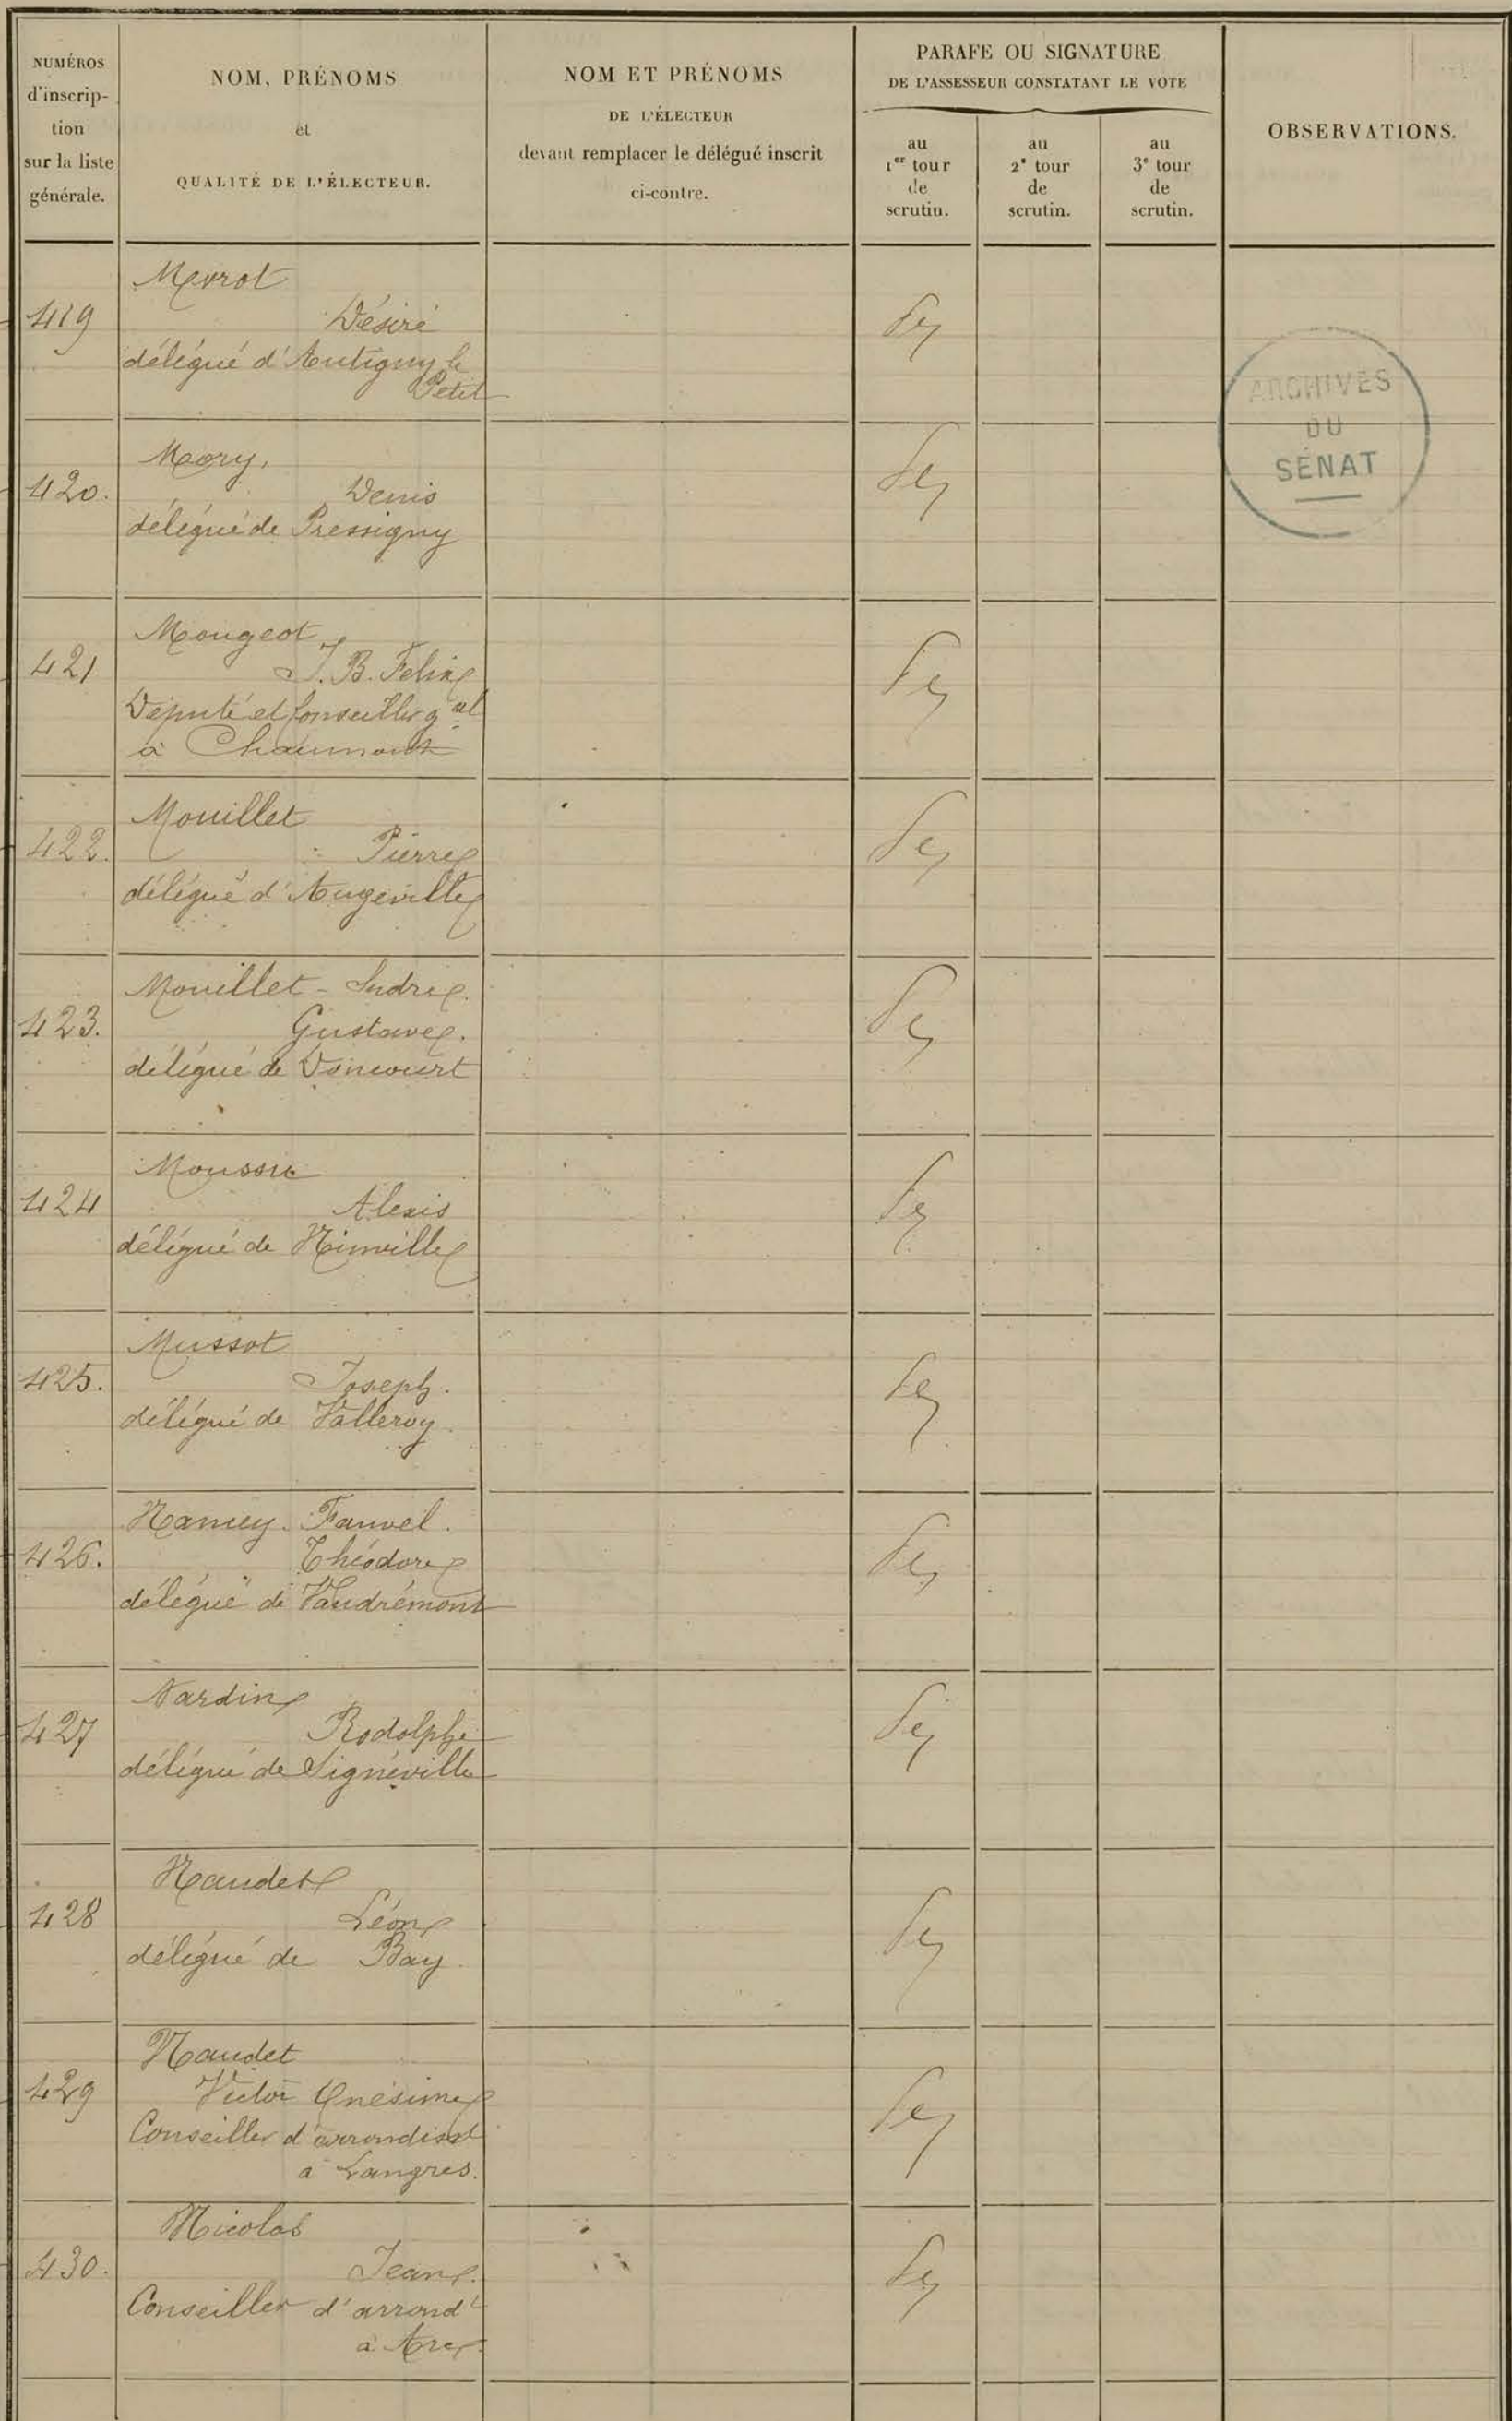 NUMÉROS
d'inscrip-
tion
sur la liste
générale.
NOM, PRÉNOMS
et
QUALITÉ DE L'ÉLECTEUR.
NOM ET PRÉNOMS
DE L'ÉLECTEUR
devant remplacer le délégué inscrit
ci-contre.
PARAFE OU SIGNATURE
DE L'ASSESSEUR CONSTATANT LE VOTE
au
1er tour
de
scrutin.
au
2e tour
de
scrutin.
au
3e tour
de
scrutin.
OBSERVATIONS.
ARCHIVES
DU
SÉNAT
419
Désiré
délégué d'Autigny le
Petit
420.
Mory,
Denis
délégué de Pressigny
421
Mougeot
J. B. Felix
Député et Conseiller gal
à Chaumont
422.
Mouillet
Pierre
délégué d'Augeville
423.
Mouillet - Sudre
Gustave.
délégué de Doncourt
424
Moussu
Alexis
délégué de Ninville
425.
Mussot
Joseph.
délégué de Valleroy
426.
Fauvel.
Théodore
délégué de Vaudrémont
427
Nardin
Rodolphe
délégué de Signéville
428
Naudet
Léon
délégué de Bay
429
Naudet
Victor Onésime
Conseiller d'arrondisst
à Langres.
430.
Nicolas
Jean.
Conseiller d'arrondt
à Arc